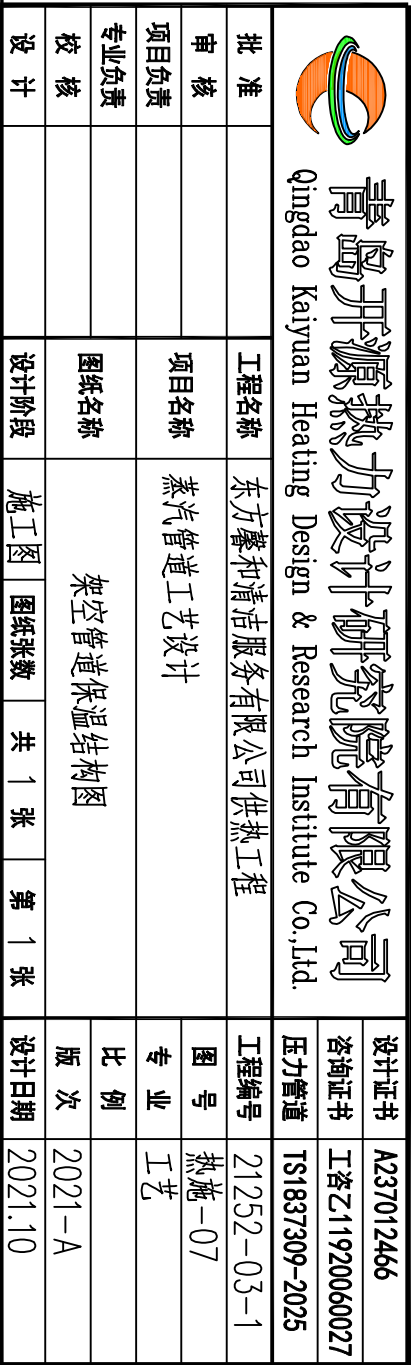 青岛开源热力设计研究院有限公司
Qingdao Kaiyuan Heating Design & Research Institute Co.,Ltd.
设计证书 A237012466
咨询证书 工咨乙11920060027
压力管道 TS1837309-2025
批 准 工程名称 东方馨和清洁服务有限公司供热工程 工程编号 21252-03-1
审 核 图 号 热施-07
项目负责 项目名称 蒸汽管道工艺设计 专 业 工艺
专业负责 比 例
校 核 图纸名称 架空管道保温结构图 版 次 2021-A
设 计 设计阶段 施工图 图纸张数 共 1 张 第 1 张 设计日期 2021.10